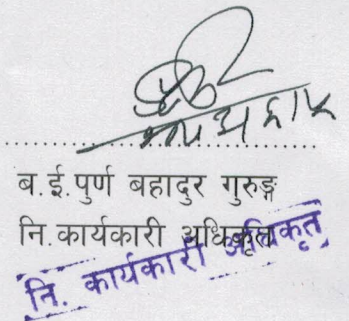 ब.ई.पुर्ण बहादुर गुरुङ्ग
नि.कार्यकारी अधिकृत
नि. कार्यकारी अधिकृत